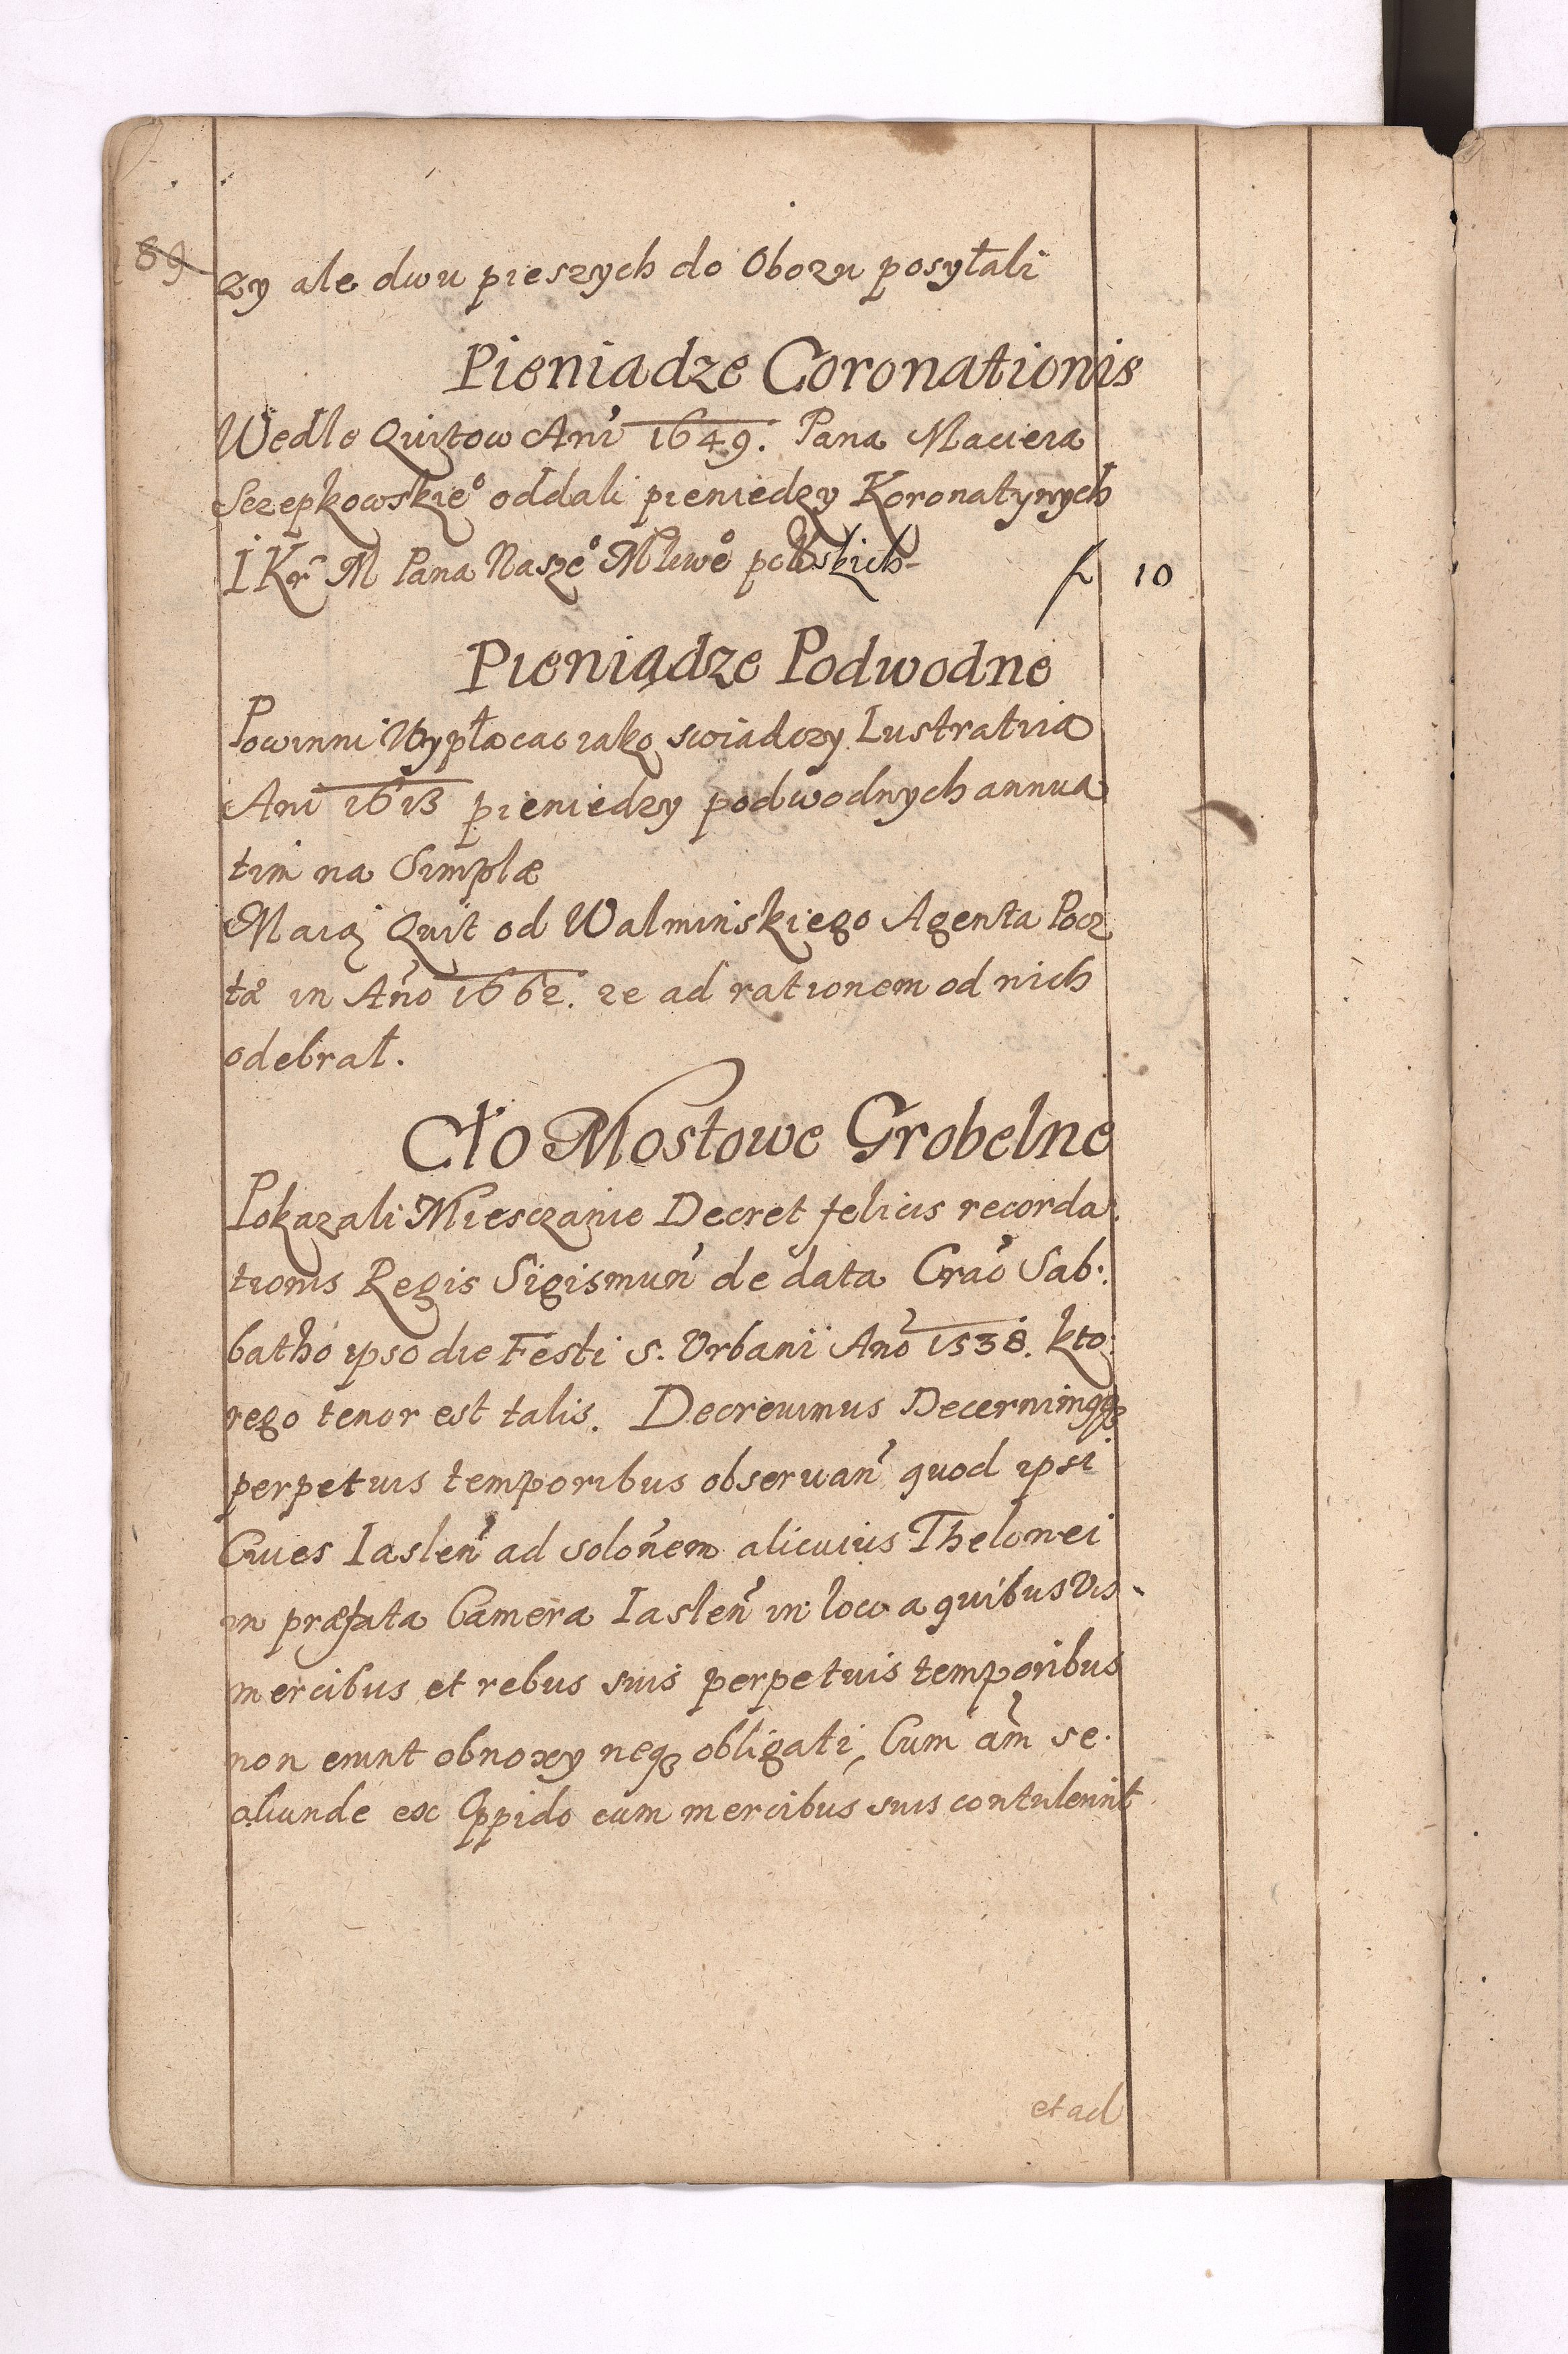 89
zy ale dwu pieszych do Obozu posyłali
Pieniadze Coronationis
Wedle Quitow Ani 1649. Pana Macieia
Szczepkowskieo oddali pieniedzy Koronatynych
I Kr M Pana Nasze° Młwe° polskich
f 10
Pieniądze Podwodne
Powinni Wypłacac iako swiadczy Lustratia
Ani 1613 pieniedzy podwodnych annua
tim na Simplæ
Maią Quit od Walminskiego Agenta Pocz
ta° in Ano 1662. ze ad rationem od nich
odebrał.
Cło Mostowe Grobelne
Pokazali Miesczanie Decret felicis recorda
tionis Regis Sigismun de data Crac Sab:
batho ipso die Festi S. Urbani Ano 1538. kto:
rego tenor est talis. Decreuimus Decernimqq
perpetuis temporibus obseruan quod ipsi
Ciues Iaslen ad solonem alicuius Thelonei
in præfata Camera Iaslen in loco a quibus Vis-
mercibus et rebus suis perpetuis temporibus
non erunt obnoxy neq obligati, Cum am se.
aliunde ex Oppido cum mercibus suis contulerint
et ad